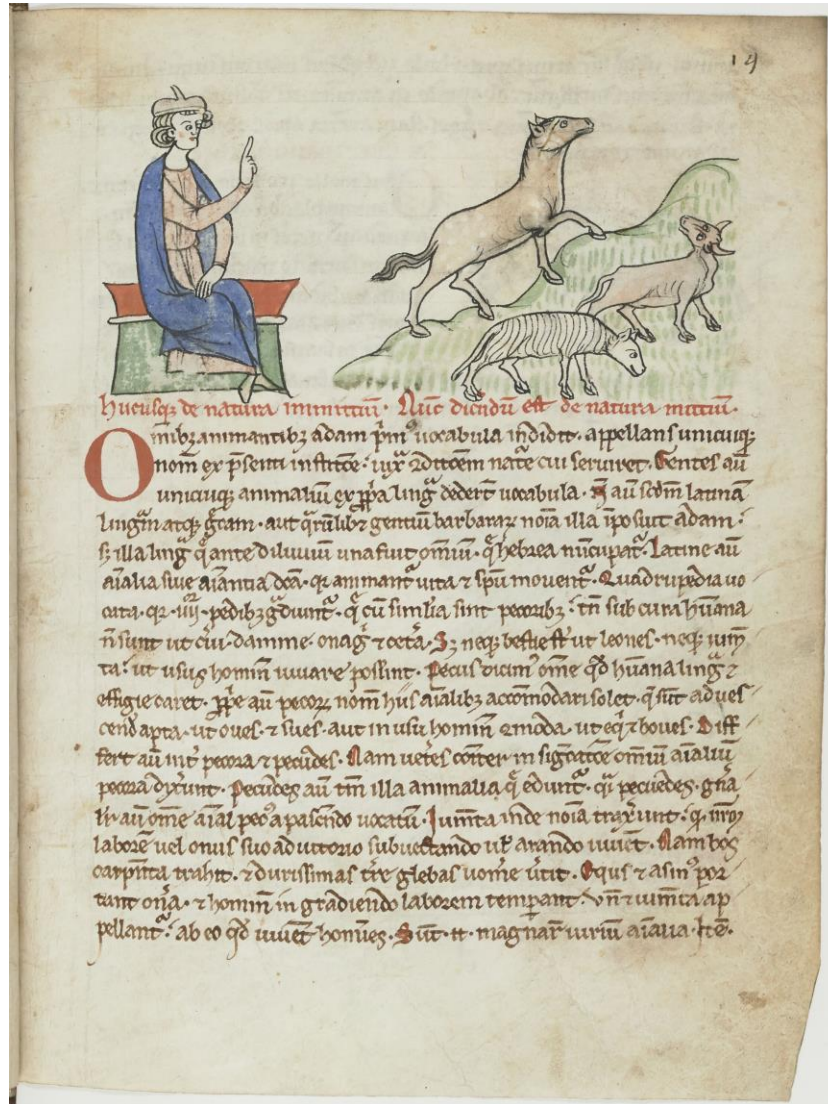 19
Hucusq; de natura inmitiū. Nūc dicēdū est de natura mitiū.
Omībꝫ animantibꝫ adam p̄mꝰ uocabula indidit. appellans unicuiq;
nom̄ ex p̄senti institōe. iux̄ ↄditōem nat̄e cui seruiret. Gentes aū
unicuiq; animaliū ex ꝓp̄a linḡa dedert̄ uocabula. N̄ aū scdm̄ latinā
lingūa atq; g̃cam. aut q̄rūlibꝫ gentiū barbararꝫ noīa illa īposuit adam.
sꝫ illa linḡ q̄ ante diluuiū una fuit om̄iū. q̄ hebrea nūcupat̄. Latine aū
aīalia siue aīantia dc̄a. qꝛ animant̄ uita ⁊ spū mouent̄. Quadrupedia uo
cata. qꝛ .iiii. pedibꝫ g̃diunt̄. q̄ cū similia sint pecoribꝫ. tn̄ sub cura hūana
n̄ sunt ut cerui. damme. onag̃ ⁊ cet̄a. Sꝫ neq; bestie st̄ ut leones. neq; ium̄
ta. ut usus hominū iuuare possint. Pecus dicimꝰ om̄e qd̄ hūana linḡa ⁊
effigie caret. ꝓp̄e aū pecorꝫ nom̄ hiis aīalibꝫ accōmodari solet. q̄ sūt ad ues
cend̄ apta. ut oues. ⁊ sues. aut in usu hominū ↄmoda. ut eq̄ ⁊ boues. Diff
fert aū int̄ pecora ⁊ pecudes. Nam uet̄es cōit̄er in sig̃catōe om̄iū aīaliū
pecora dix̄unt. Pecudes aū tm̄ illa animalia q̄ edunt̄. q̄i pecuedes. gn̄a
lit̄ aū om̄e aīal pecꝰ a pascendo uocatū. Jumt̄a inde noīa trax̄unt. qꝛ nr̄m
laborē uel onus suo adiutorio subuectando ul̄ arando iuuēt. Nam bos
carpn̄ta trahit. ⁊ durissimas tr̄e glebas uom̄e ūtit. Equs ⁊ asinꝰ por
tant on̄a. ⁊ hominū in gradiendo laborem temperant. Vn̄ ⁊ iumt̄a ap
pellant̄. ab eo qd̄ iuuēt homīes. Sūt .n. magnarꝫ uiriū aīalia. Itē.